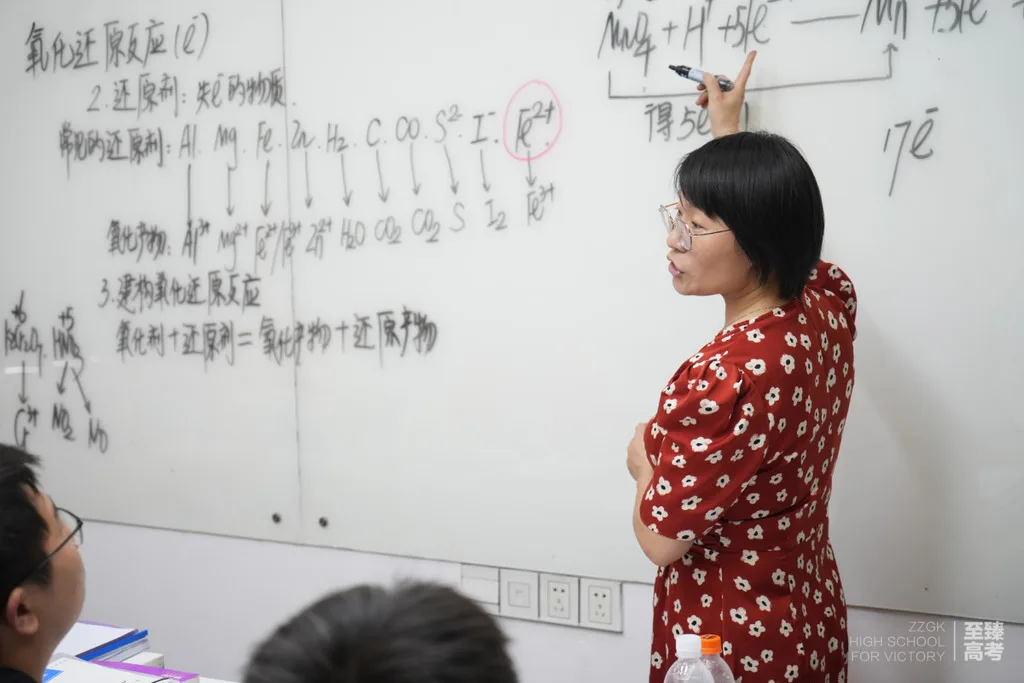 氧化还原反应(e⁻)
2.还原剂:失e⁻的物质.
常见的还原剂:Al. Mg. Fe. Zn. H₂. C. CO. S²⁻. I⁻. Fe²⁺.
↓ ↓ ↓ ↓ ↓ ↓ ↓ ↓ ↓ ↓
氧化产物:Al³⁺ Mg²⁺ Fe²⁺/Fe³⁺ Zn²⁺ H₂O CO₂ CO₂ S I₂ Fe³⁺
3.建构氧化还原反应
氧化剂+还原剂=氧化产物+还原产物
+6 +5
K₂Cr₂O₇. HNO₃
Cr³⁺ NO₂ NO
MnO₄⁻+H⁺+5Fe²⁺ — Mn
得5e⁻
17e⁻
ZZGK
HIGH SCHOOL
FOR VICTORY
至臻
高考